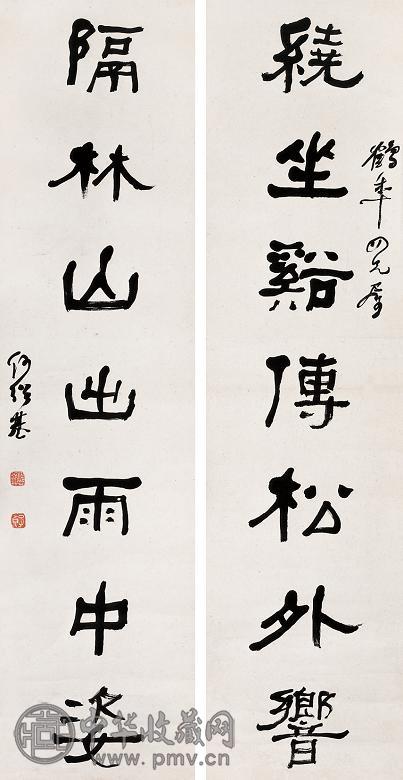 鶴年四兄屬
繞坐谿傳松外響
隔林山出雨中姿
何紹基
中华收藏网
www.pmv.cn